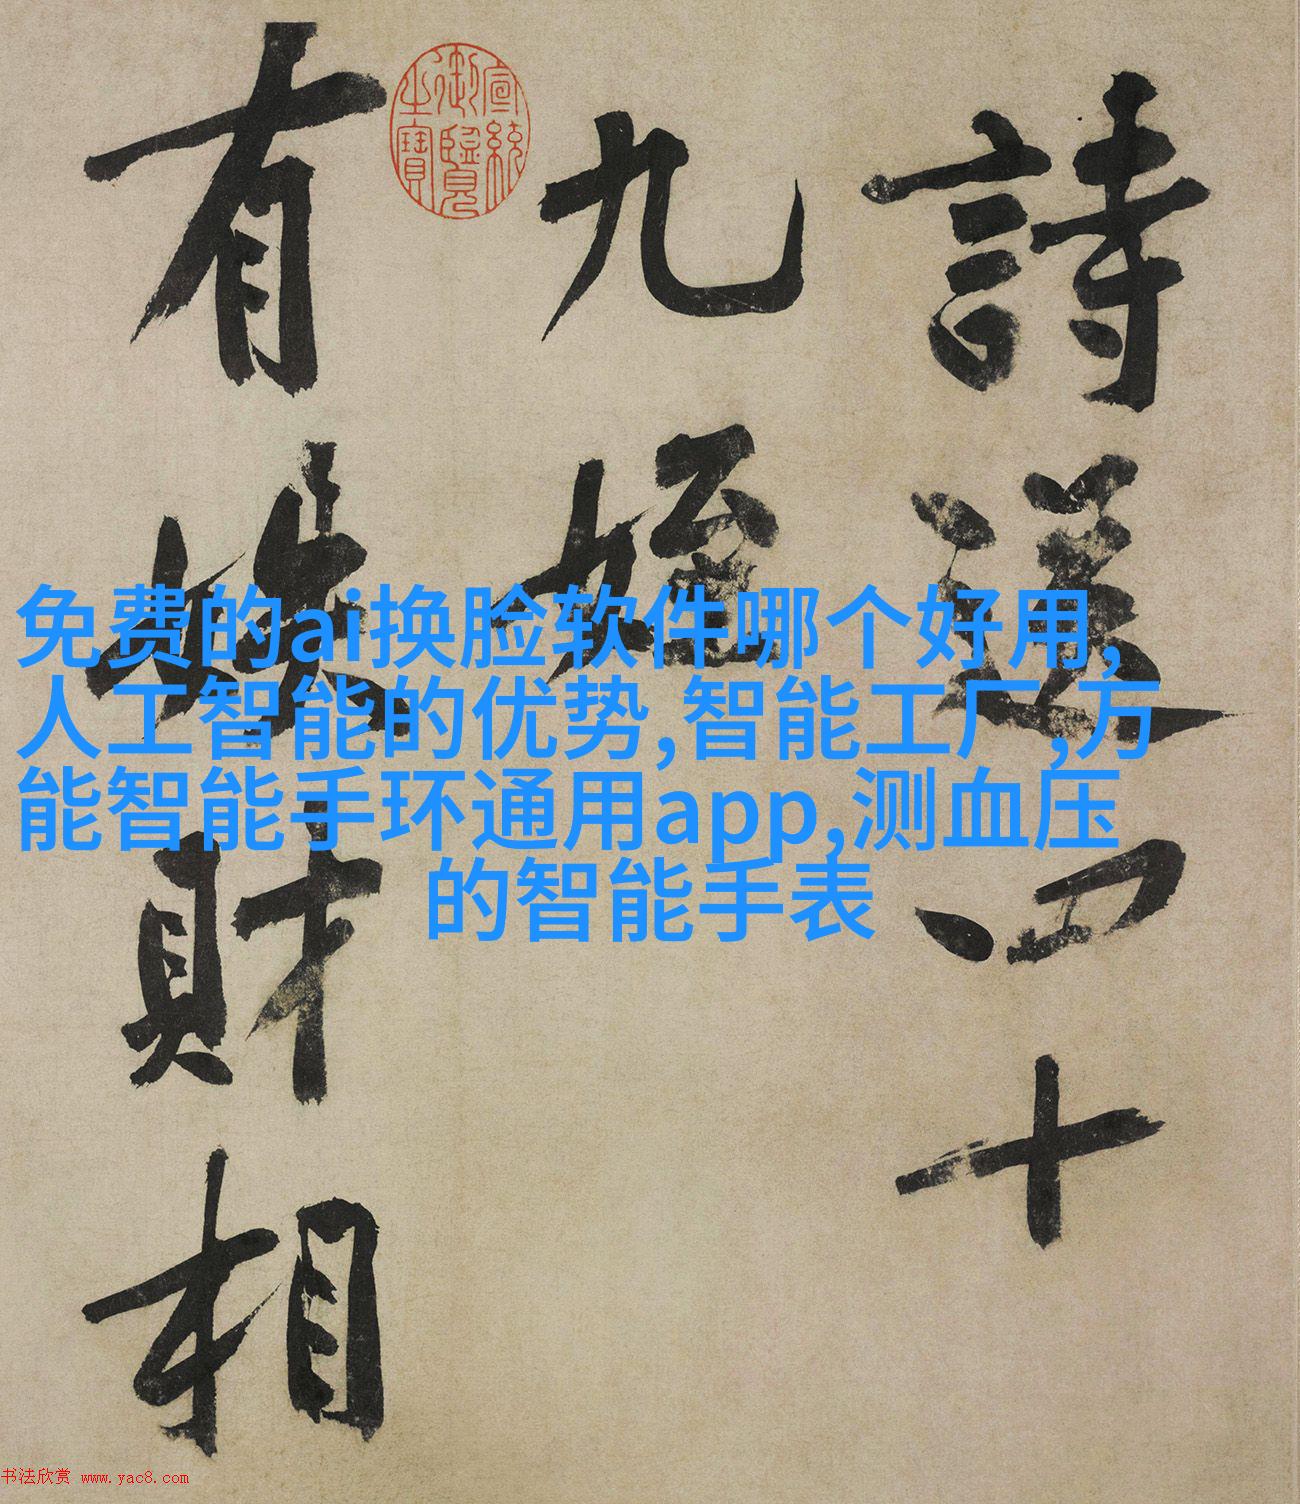 詩送四十
九姪
有
財相
宣統
御覽
之寶
免费的ai换脸软件哪个好用,
人工智能的优势,智能工厂,万
能智能手环通用app,测血压
的智能手表
书法欣赏 www.yac8.com